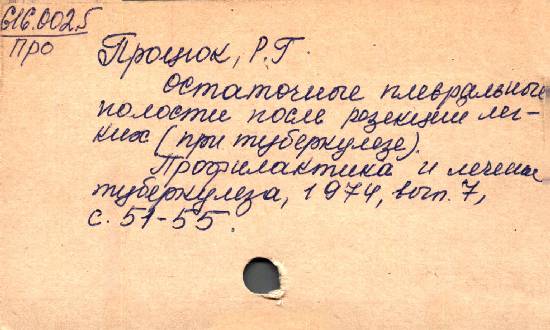 616.002.5
Про
Процюк, Р.Г.
Остаточные плевральные
полости после резекции лег-
ких (при туберкулезе).
Профилактика и лечение
туберкулеза, 1974, вып. 7,
с. 51-55.